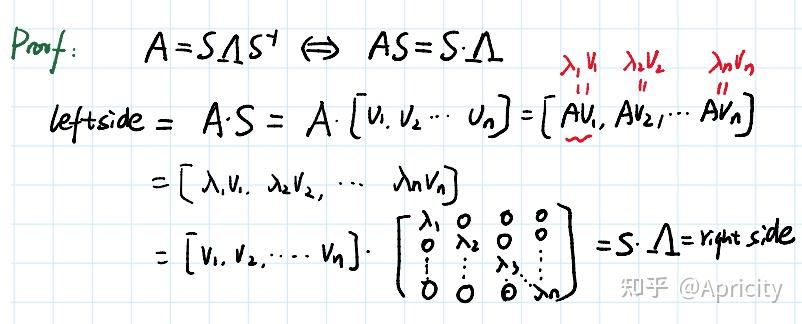 Proof: A = SΛS⁻¹ ⟺ AS = S·Λ
λ₁V₁ λ₂V₂ λₙVₙ
॥ ॥ ॥
leftside = A·S = A·[V₁, V₂ ··· Vₙ] = [AV₁, AV₂, ··· AVₙ]
= [λ₁V₁, λ₂V₂, ··· λₙVₙ]
= [V₁, V₂, ···· Vₙ] · [λ₁ 0 0 0
0 λ₂ 0 0
⋮ ⋮ λ₃ ⋱ ⋮
0 0 0 λₙ] = S·Λ = right side
知乎 @Apricity